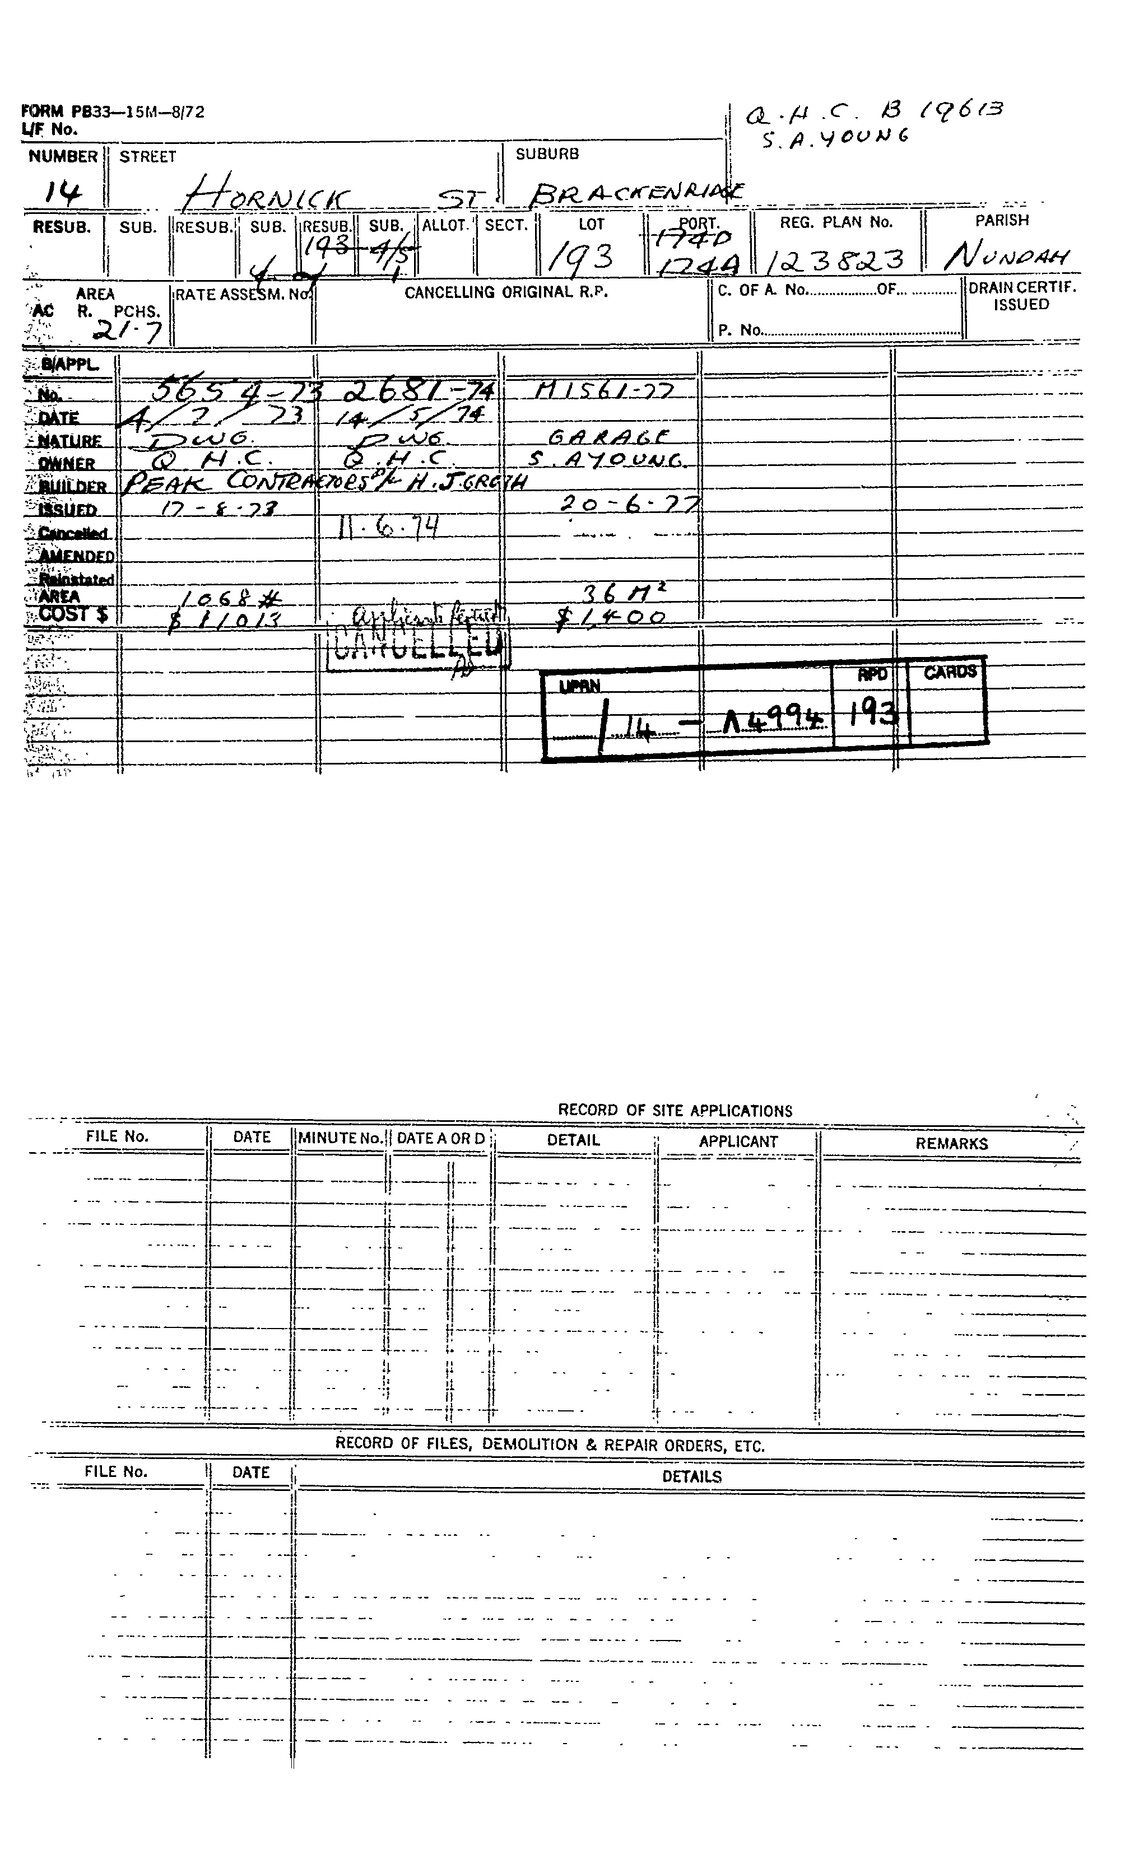 FORM PB33—15M—8/72
L/F No.
Q.H.C. B 19613
S.A.YOUNG
NUMBER STREET SUBURB
14 HORNICK ST BRACKENRIDGE
RESUB. SUB. RESUB. SUB. RESUB. SUB. ALLOT. SECT. LOT PORT. REG. PLAN No. PARISH
193 4/5 174D
193 174A 123823 NUNDAH
AREA RATE ASSESM. No. CANCELLING ORIGINAL R.P. C. OF A. No. OF DRAIN CERTIF.
AC R. PCHS. ISSUED
21.7 P. No.
B/APPL.
No. 5654-73 2681-74 M1561-77
DATE 4/7/73 14/5/74
NATURE DWG. DWG. GARAGE
OWNER Q.H.C. Q.H.C. S.AYOUNG.
BUILDER PEAK CONTRACTORS P/L H.J.GROTH
ISSUED 17-8-73 20-6-77
Cancelled 11.6.74
AMENDED
Reinstated
AREA 1068 # 36 M²
COST $ $11,013 $1,400
CANCELLED
UPRN RPD CARDS
/ 14 - 193
RECORD OF SITE APPLICATIONS
FILE No. DATE MINUTE No. DATE A OR D DETAIL APPLICANT REMARKS
RECORD OF FILES, DEMOLITION & REPAIR ORDERS, ETC.
FILE No. DATE DETAILS